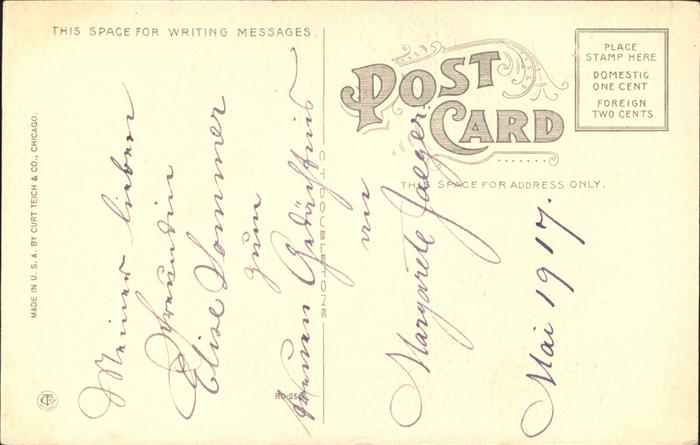 THIS SPACE FOR WRITING MESSAGES.
POST
CARD
PLACE
STAMP HERE
DOMESTIC
ONE CENT
FOREIGN
TWO CENTS
THIS SPACE FOR ADDRESS ONLY.
MADE IN U. S. A. BY CURT TEICH & CO., CHICAGO.
C.T. DOUBLETONE
Meiner lieben
Freundin
Elise Sommer
zum
Gedächtnis
von
Margarete Jaeger
Mai 1917.